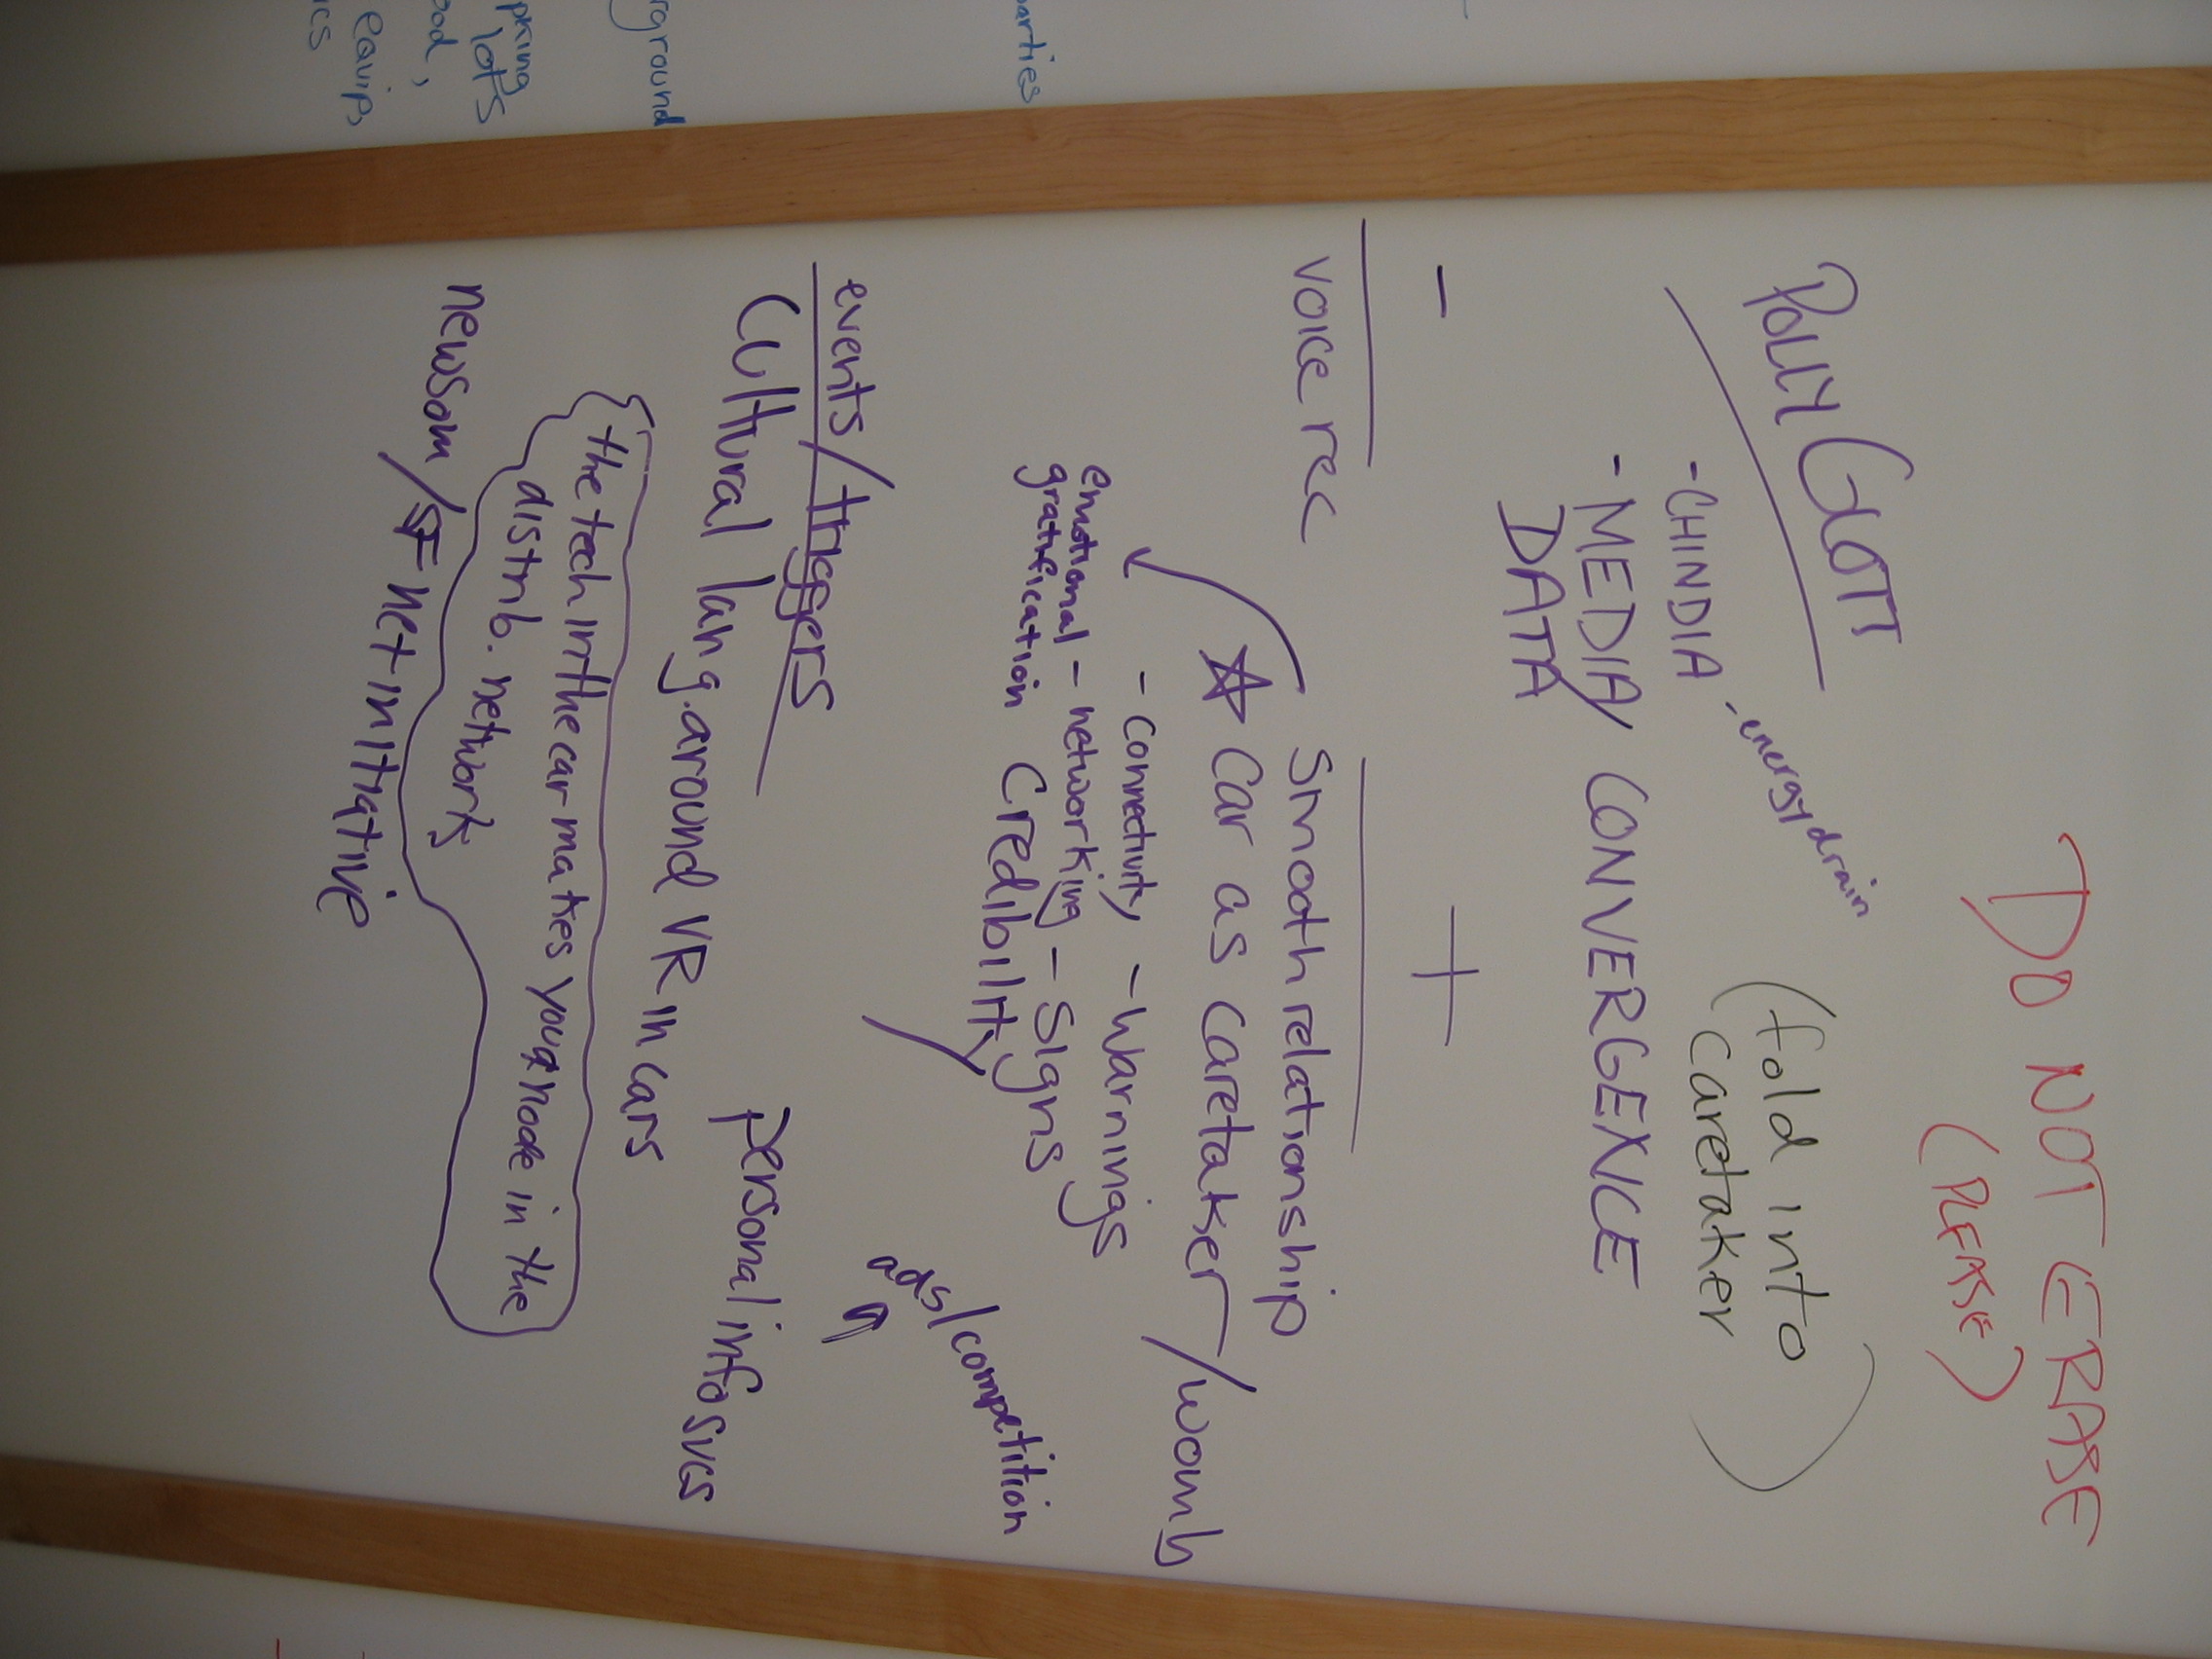 DO NOT ERASE
(PLEASE)
POLLY GOTT
(fold into
caretaker)
- CHINDIA - energy drain
- MEDIA/ CONVERGENCE
DATA
- +
voice rec
Smooth relationship
☆ Car as Caretaker/womb
- Connectivity - Warnings
emotional - networking - Signs
gratification Credibility
ads/competition
events/triggers
personal info svcs
Cultural lang. around VR in Cars
{the tech in the car makes you a node in the
distrib. network
newsom/SF net initiative
parties
rground
pking
lots
ood,
equip,
ics